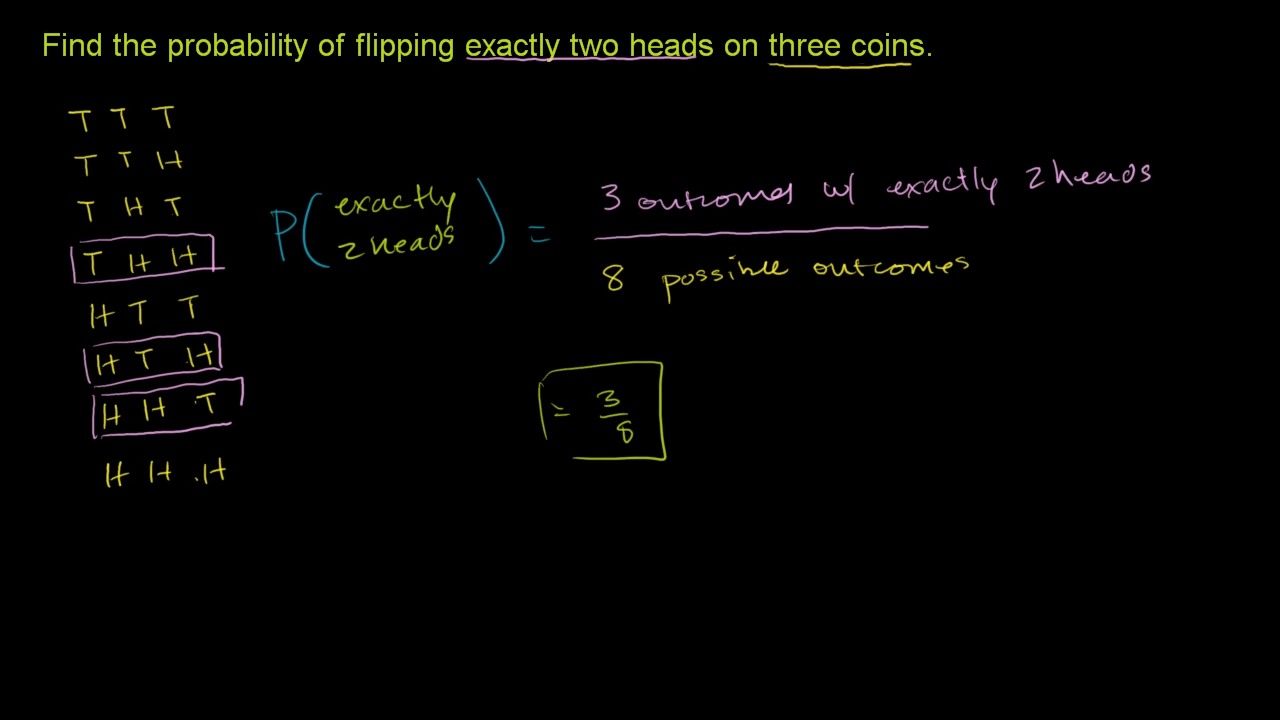 Find the probability of flipping exactly two heads on three coins.
T T T
T T H
T H T
T H H
H T T
H T H
H H T
H H H
P( exactly 2 heads ) = 3 outcomes w/ exactly 2 heads
8 possible outcomes
= 3/8